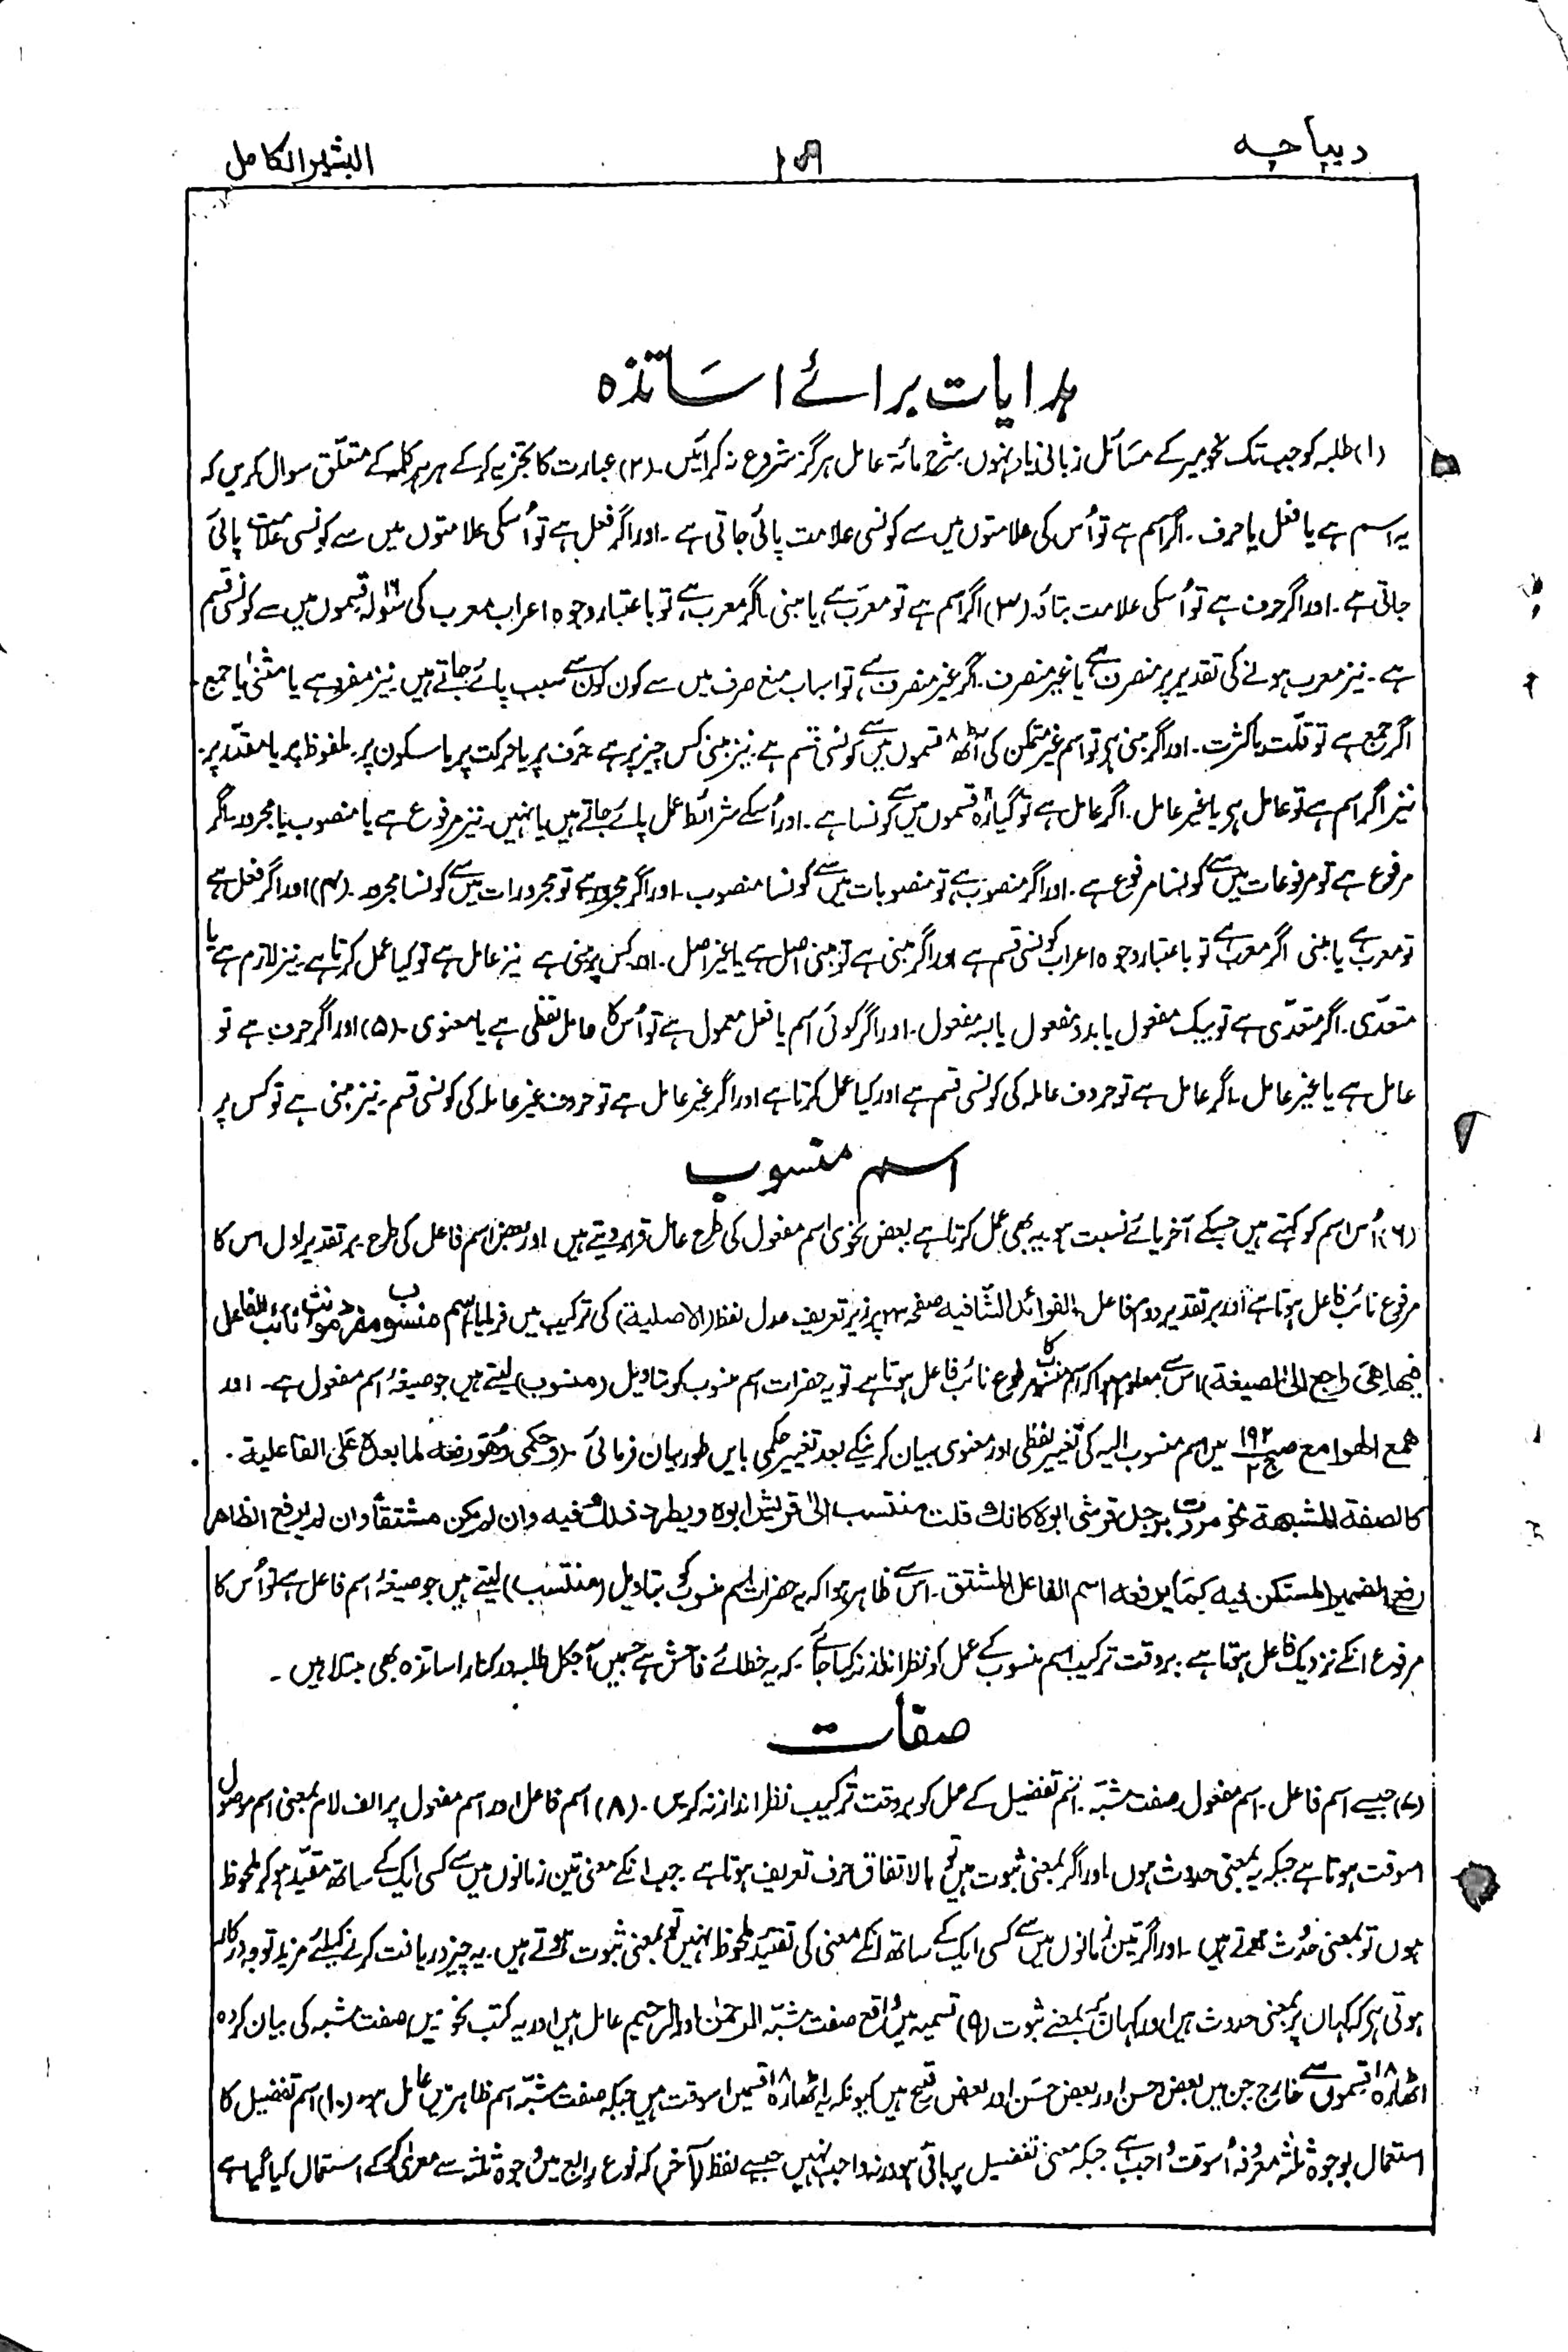 دیباچہ
البشیر الکامل
ہدایات برائے اساتذہ
(۱) طلبہ کو جب تک نحو میر کے مسائل زبانی یاد نہوں شرح مائۃ عامل ہرگز شروع نہ کرائیں۔ (۲) عبارت کا تجزیہ کرکے ہر ہر کلمہ کے متعلق سوال کریں کہ
یہ اسم ہے یا فعل یا حرف۔ اگر اسم ہے تو اُس کی علامتوں میں سے کونسی علامت پائی جاتی ہے۔ اور اگر فعل ہے تو اُسکی علامتوں میں سے کونسی علامت پائی
جاتی ہے۔ اور اگر حرف ہے تو اُسکی علامت بتاؤ (۳) اگر اسم ہے تو معرب ہے یا مبنی اگر معرب ہے تو باعتبار وجوہ اعراب معرب کی سولہ ۱۶ قسموں میں سے کونسی قسم
ہے۔ نیز معرب ہونے کی تقدیر پر منصرف ہے یا غیر منصرف۔ اگر غیر منصرف ہے تو اسباب منع صرف میں سے کون کون سے سبب پائے جاتے ہیں۔ نیز مفرد ہے یا مثنیٰ یا جمع
اگر جمع ہے تو قلّت یا کثرت۔ اور اگر مبنی ہی تو اسم غیر متمکن کی آٹھ ۸ قسموں میں سے کونسی قسم ہے۔ نیز مبنی کس چیز پر ہے حرف پر یا حرکت پر یا سکون پر۔ ملفوظ پر یا مقدّر پر۔
نیز اگر اسم ہے تو عامل ہی یا غیر عامل۔ اگر عامل ہے تو گیارہ قسموں میں سے کونسا ہے۔ اور اُسکے شرائط عمل پائے جاتے ہیں یا نہیں۔ نیز مرفوع ہے یا منصوب یا مجرور۔ اگر
مرفوع ہے تو مرفوعات میں سے کونسا مرفوع ہے۔ اور اگر منصوب ہے تو منصوبات میں سے کونسا منصوب۔ اور اگر مجرور ہے تو مجرورات میں سے کونسا مجرور۔ (۴) اور اگر فعل ہے
تو معرب ہے یا مبنی اگر معرب ہے تو باعتبار وجوہ اعراب کونسی قسم ہے اور اگر مبنی ہے تو مبنی اصل ہے یا غیر اصل۔ اور کس پر مبنی ہے نیز عامل ہے تو کیا عمل کرتا ہے۔ نیز لازم ہے یا
متعدّی۔ اگر متعدّی ہے تو بیک مفعول یا بدو مفعول یا بسہ مفعول۔ اور اگر کوئی اسم یا فعل معمول ہے تو اُس کا عامل لفظی ہے یا معنوی۔ (۵) اور اگر حرف ہے تو
عامل ہے یا غیر عامل۔ اگر عامل ہے تو حروف عاملہ کی کونسی قسم ہے اور کیا عمل کرتا ہے اور اگر غیر عامل ہے تو حروف غیر عاملہ کی کونسی قسم۔ نیز مبنی ہے تو کس پر
اسم منسوب
(۶) اُس اسم کو کہتے ہیں جسکے آخر یائے نسبت ہو یہ بھی عمل کرتا ہے بعض نحوی اسم مفعول کی طرح عامل قرار دیتے ہیں اور بعض اسم فاعل کی طرح۔ بر تقدیر اول اس کا
مرفوع نائب فاعل ہوتا ہے اور بر تقدیر دوم فاعل۔ الفوائد الشافیہ صفحہ پر زیر تعریف عدل لفظ (الاصلیۃ) کی ترکیب میں فرمایا اسم منسوب مفرد مونث نائب الفاعل
فیھا ھی راجع الی الصیغة) اس سے معلوم ہوا کہ اسم منسوب کا مرفوع نائب فاعل ہوتا ہے۔ تو یہ حضرات اسم منسوب کو بتاویل (منسوب) لیتے ہیں جو صیغۂ اسم مفعول ہے۔ اور
ھمع الھوامع ص ۱۹۲ ج ۲ میں اسم منسوب الیہ کی تغییر لفظی اور معنوی بیان کرنیکے بعد تغییر حکمی بایں طور بیان فرمائی۔ (وحکمی وھو رفعہ لما بعدہ علی الفاعلیة۔
کالصفة المشبھة نحو مررت برجل قرشی ابوہ کانك قلت منتسب الی قریش ابوہ ویطرد ذلك فیہ وان لم یکن مشتقا وان لم یرفع الظاھر
رفع الضمیر المستکن فیہ کما یرفعہ اسم الفاعل المشتق۔ اس سے ظاہر ہوا کہ یہ حضرات اسم منسوب کو بتاویل (منتسب) لیتے ہیں جو صیغۂ اسم فاعل ہے تو اُس کا
مرفوع انکے نزدیک فاعل ہوتا ہے۔ بروقت ترکیب اسم منسوب کے عمل کو نظر انداز نہ کیا جائے۔ کہ یہ خطائے فاحش ہے جسمیں آجکل طلبہ در کنار اساتذہ بھی مبتلا ہیں۔
صفات
(۷) جیسے اسم فاعل۔ اسم مفعول۔ صفت مشبّہ۔ اسم تفضیل کے عمل کو بروقت ترکیب نظر انداز نہ کریں۔ (۸) اسم فاعل اور اسم مفعول پر الف لام بمعنی اسم موصول
اسوقت ہوتا ہے جبکہ یہ بمعنی حدوث ہوں اور اگر بمعنی ثبوت ہیں تو بالاتفاق حرف تعریف ہوتا ہے۔ جب انکے معنی تین زمانوں میں سے کسی ایک کے ساتھ مقیّد ہوکر ملحوظ
ہوں تو بمعنی حدوث ہوتے ہیں۔ اور اگر تین زمانوں میں سے کسی ایک کے ساتھ انکے معنی کی تقیید ملحوظ نہیں تو بمعنی ثبوت ہوتے ہیں۔ یہ چیز دریافت کرنے کیلئے مزید توجہ درکار
ہوتی ہی کہ کہاں پر بمعنی حدوث ہیں اور کہاں پر بمعنے ثبوت (۹) تسمیہ میں واقع صفت مشبّہ الرحمٰن اور الرحیم عامل ہیں اور یہ کتب نحو میں صفت مشبہ کی بیان کردہ
اٹھارہ ۱۸ قسموں سے خارج جن میں بعض احسن اور بعض حسن اور بعض قبیح ہیں کیونکہ یہ اٹھارہ ۱۸ قسمیں اسوقت ہیں جبکہ صفت مشبّہ اسم ظاہر میں عامل ہو۔ (۱۰) اسم تفضیل کا
استعمال بوجوہ ثلٰثہ معروفہ اُسوقت واجب ہے جبکہ معنی تفضیل پر باقی ہو ورنہ واجب نہیں جیسے لفظ (آخر) کہ نوع رابع میں وجوہ ثلٰثہ سے معرّیٰ کرکے استعمال کیا گیا ہے